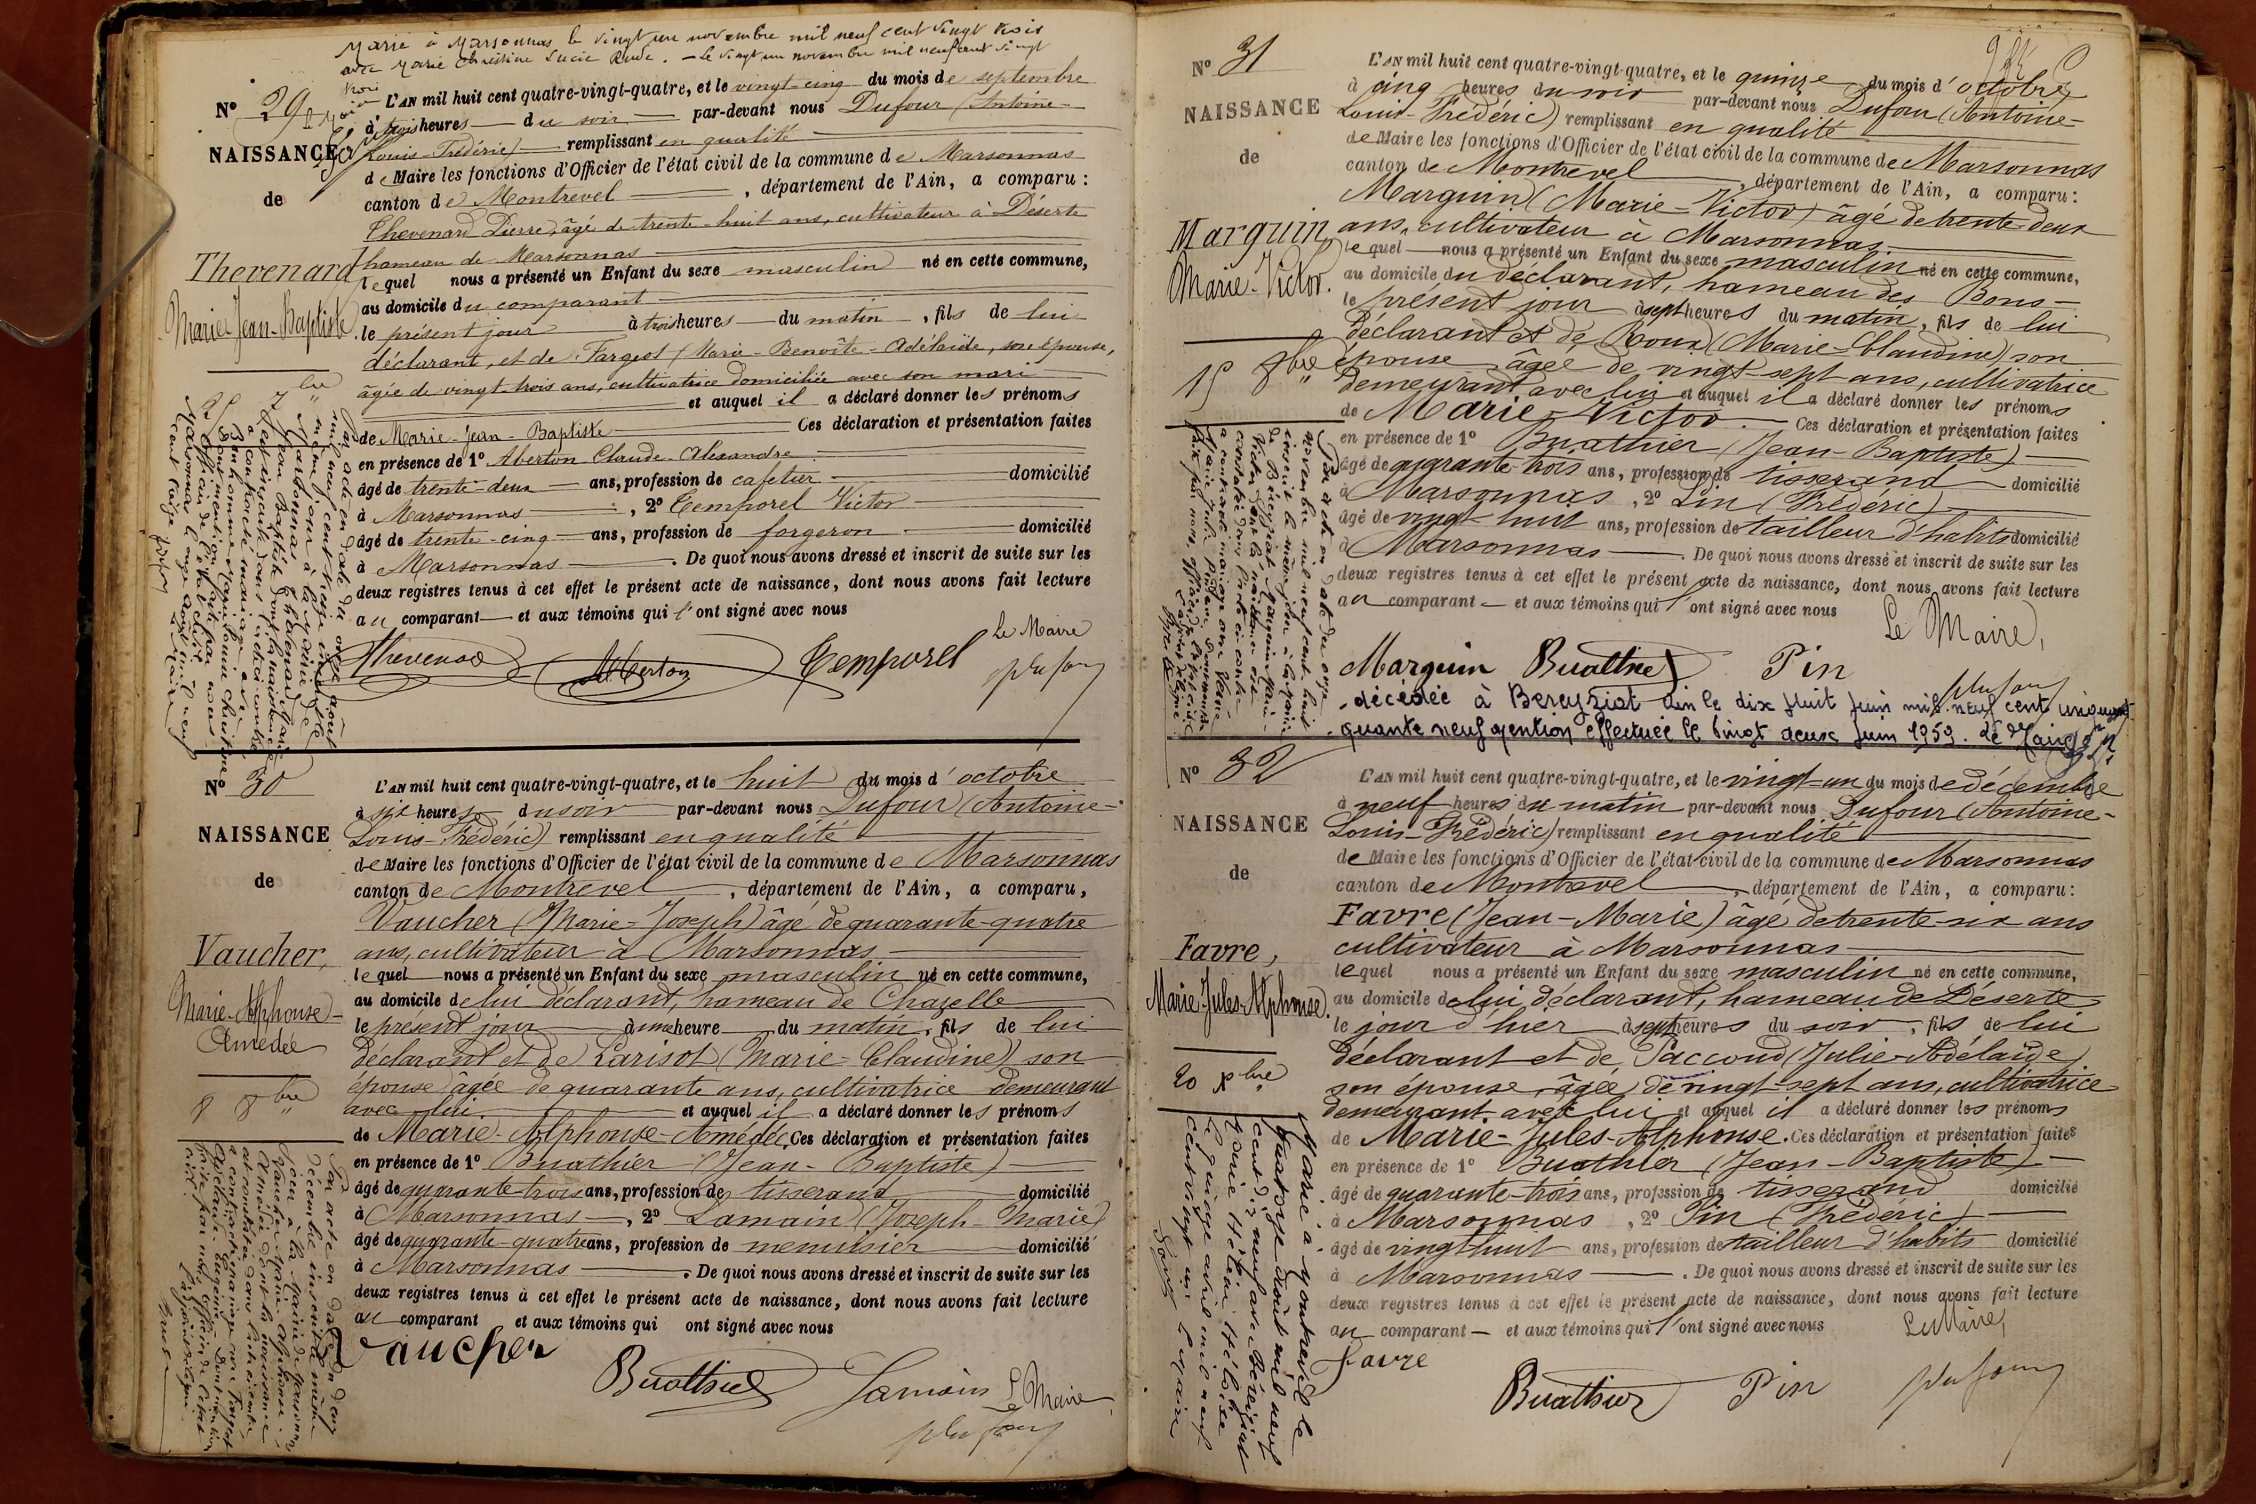 Marié à Marsonnas le vingt un novembre mil neuf cent vingt trois
avec Marie Christine Lucie Rude. — Le vingt un novembre mil neuf cent vingt
trois
N° 29
NAISSANCE
de
Thevenard
Marie-Jean-Baptiste
L'AN mil huit cent quatre-vingt-quatre, et le vingt-cinq du mois de septembre
à trois heures du soir par-devant nous Dufour (Antoine-
Louis-Frédéric) remplissant en qualité
de Maire les fonctions d'Officier de l'état civil de la commune de Marsonnas
canton de Montrevel, département de l'Ain, a comparu :
Thevenard Pierre, âgé de trente-huit ans, cultivateur à Déserte
hameau de Marsonnas
lequel nous a présenté un Enfant du sexe masculin né en cette commune,
au domicile du comparant
le présent jour à trois heures du matin, fils de lui
déclarant, et de Farget (Marie-Benoîte-Adélaïde, son épouse,
âgée de vingt-trois ans, cultivatrice domiciliée avec son mari
et auquel il a déclaré donner les prénoms
de Marie-Jean-Baptiste Ces déclaration et présentation faites
en présence de 1° Aberton Claude-Alexandre
âgé de trente-deux ans, profession de cafetier domicilié
à Marsonnas, 2° Temporel Victor
âgé de trente-cinq ans, profession de forgeron domicilié
à Marsonnas. De quoi nous avons dressé et inscrit de suite sur les
deux registres tenus à cet effet le présent acte de naissance, dont nous avons fait lecture
au comparant et aux témoins qui l'ont signé avec nous
Le Maire
Thevenard Aberton Temporel Dufour
Par acte en date du onze août
mil neuf cent treize inscrit le
même jour à la mairie de
Marsonnas Thévenard Marie
Jean Baptiste dont la naissance
est inscrite dans l'acte ci contre
a contracté mariage avec
N° 30
NAISSANCE
de
Vaucher,
Marie-Alphonse-
Amédée
8 8bre
L'AN mil huit cent quatre-vingt-quatre, et le huit du mois d'octobre
à six heures du soir par-devant nous Dufour (Antoine-
Louis-Frédéric) remplissant en qualité
de Maire les fonctions d'Officier de l'état civil de la commune de Marsonnas
canton de Montrevel, département de l'Ain, a comparu,
Vaucher (Marie-Joseph) âgé de quarante-quatre
ans, cultivateur à Marsonnas
lequel nous a présenté un Enfant du sexe masculin né en cette commune,
au domicile de lui déclarant, hameau de Chazelle
le présent jour à une heure du matin, fils de lui
déclarant et de Parisot (Marie-Claudine) son
épouse âgée de quarante ans, cultivatrice demeurant
avec lui. et auquel il a déclaré donner les prénoms
de Marie-Alphonse-Amédée. Ces déclaration et présentation faites
en présence de 1° Buathier (Jean-Baptiste)
âgé de quarante-trois ans, profession de tisserand domicilié
à Marsonnas, 2° Lamain (Joseph-Marie)
âgé de quarante-quatre ans, profession de menuisier domicilié
à Marsonnas. De quoi nous avons dressé et inscrit de suite sur les
deux registres tenus à cet effet le présent acte de naissance, dont nous avons fait lecture
au comparant et aux témoins qui ont signé avec nous
Vaucher
Buathier Lamain Le Maire
Dufour
N° 31
NAISSANCE
de
Marguin
Marie-Victor.
15 8bre
L'AN mil huit cent quatre-vingt-quatre, et le quinze du mois d'octobre
à cinq heures du soir par-devant nous Dufour (Antoine-
Louis-Frédéric) remplissant en qualité
de Maire les fonctions d'Officier de l'état civil de la commune de Marsonnas
canton de Montrevel, département de l'Ain, a comparu :
Marguin (Marie-Victor) âgé de trente-deux
ans, cultivateur à Marsonnas
lequel nous a présenté un Enfant du sexe masculin né en cette commune,
au domicile du déclarant, hameau des Bons
le présent jour à sept heures du matin, fils de lui
déclarant et de Roux (Marie-Claudine) son
épouse âgée de vingt-sept ans, cultivatrice
demeurant avec lui et auquel il a déclaré donner les prénoms
de Marie-Victor. Ces déclaration et présentation faites
en présence de 1° Buathier (Jean-Baptiste)
âgé de quarante-trois ans, profession de tisserand domicilié
à Marsonnas, 2° Pin (Frédéric)
âgé de vingt-huit ans, profession de tailleur d'habits domicilié
à Marsonnas. De quoi nous avons dressé et inscrit de suite sur les
deux registres tenus à cet effet le présent acte de naissance, dont nous avons fait lecture
au comparant et aux témoins qui l'ont signé avec nous
Le Maire,
Marguin Buathier Pin
Dufour
décédée à Bereyziat Ain le dix huit juin mil neuf cent cinquante
quante neuf mention effectuée le vingt deux juin 1959. Le Maire
N° 32
NAISSANCE
de
Favre,
Marie-Jules-Alphonse.
20 Xbre
L'AN mil huit cent quatre-vingt-quatre, et le vingt-un du mois de décembre
à neuf heures du matin par-devant nous Dufour (Antoine-
Louis-Frédéric) remplissant en qualité
de Maire les fonctions d'Officier de l'état civil de la commune de Marsonnas
canton de Montrevel, département de l'Ain, a comparu :
Favre (Jean-Marie) âgé de trente-six ans
cultivateur à Marsonnas
lequel nous a présenté un Enfant du sexe masculin né en cette commune,
au domicile de lui déclarant, hameau de Déserte
le jour d'hier à sept heures du soir, fils de lui
déclarant et de Paccoud (Julie-Adélaïde)
son épouse âgée de vingt-sept ans, cultivatrice
demeurant avec lui et auquel il a déclaré donner les prénoms
de Marie-Jules-Alphonse. Ces déclaration et présentation faites
en présence de 1° Buathier (Jean-Baptiste)
âgé de quarante-trois ans, profession de tisserand domicilié
à Marsonnas, 2° Pin (Frédéric)
âgé de vingt huit ans, profession de tailleur d'habits domicilié
à Marsonnas. De quoi nous avons dressé et inscrit de suite sur les
deux registres tenus à cet effet le présent acte de naissance, dont nous avons fait lecture
au comparant et aux témoins qui l'ont signé avec nous
Le Maire,
Favre
Buathier Pin Dufour
Marié à Montrevel le
quatorze août mil neuf